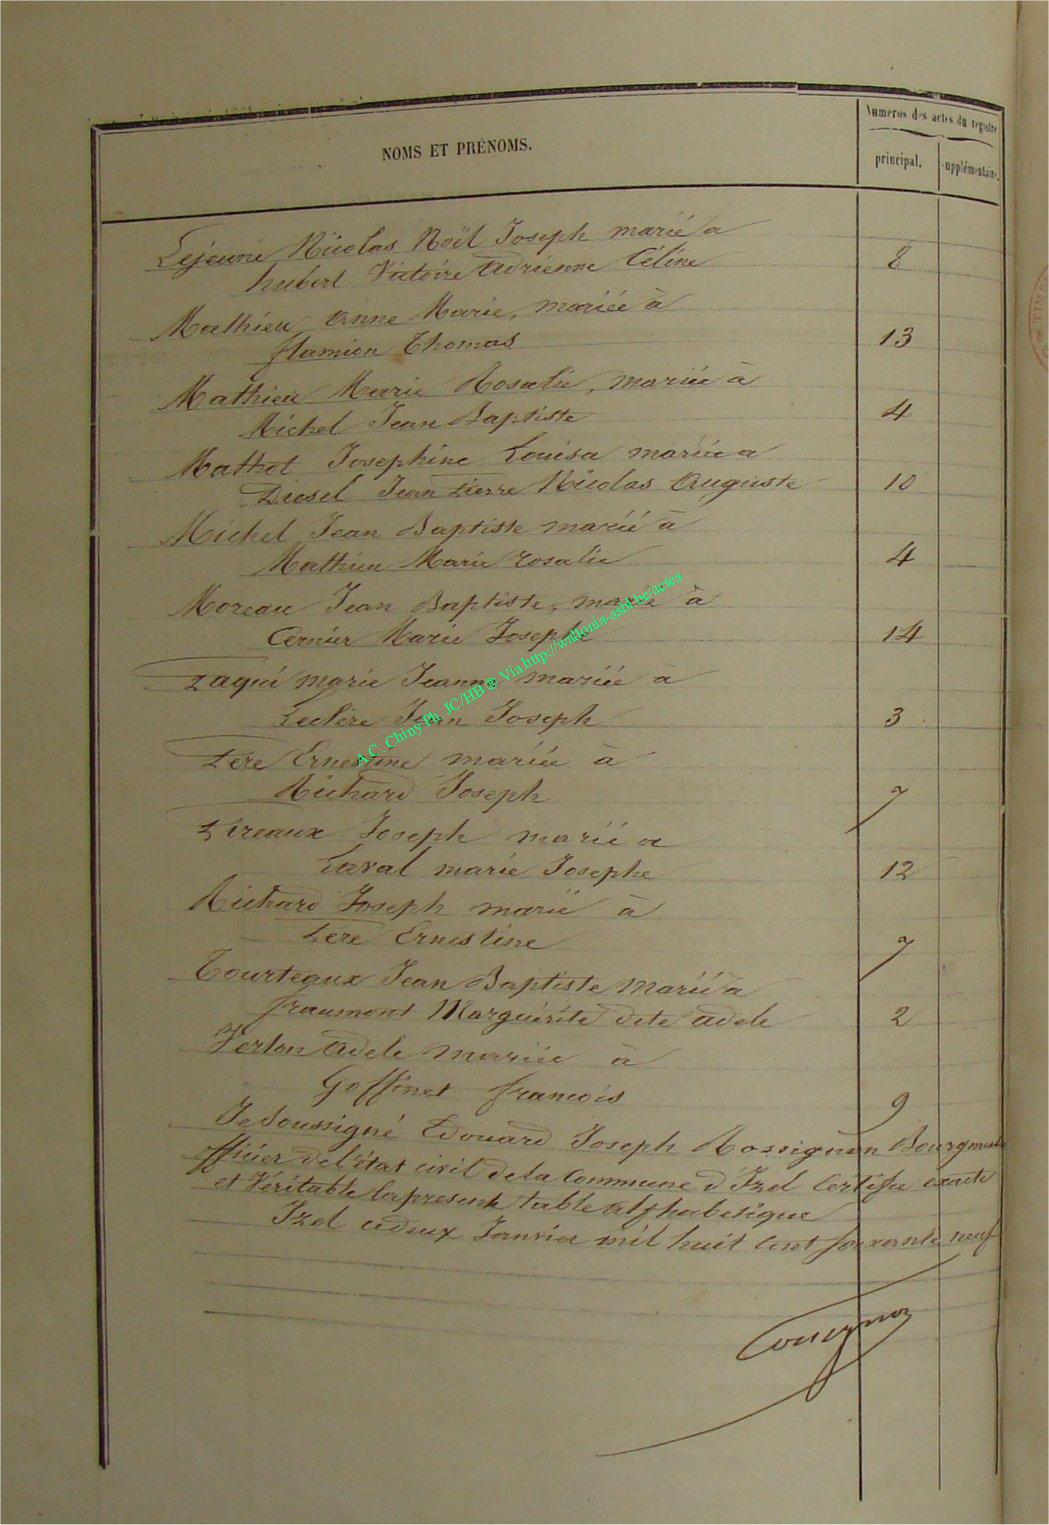 Numeros des actes du registre
NOMS ET PRÉNOMS.
principal.
supplémentaire.
Lejeune Nicolas Noël Joseph marié a
hubert Victoire Adrienne Céline 8
Mathieu Anne Marie, mariée à
flamion Thomas 13
Mathieu Marie Rosalie, mariée à
Michel Jean Baptiste 4
Mathot Josephine Louisa mariée a
Diesel Jean Pierre Nicolas Auguste 10
Michel Jean Baptiste marié à
Mathieu Marie rosalie 4
Moreau Jean Baptiste, marié à
Cernier Marie Joseph 14
Paqui marie Jeanne mariée à
Leclère Jean Joseph 3
Pere Ernestine mariée à
Richard Joseph 7
Pireaux Joseph marié a
Laval marie Josephe 12
Richard Joseph marié à
Pere Ernestine 7
Tourteaux Jean Baptiste Marié a
fraumont Marguérite dite adele 2
Verlon Adele mariée à
Goffinet francois 9
Je Soussigné Edouard Joseph Rossignon Bourgmestre
officier de l'état civil de la Commune d'Izel Certifie exacte
et Véritable la presente table alphabetique
Izel ce deux Janvier mil huit cent soixante neuf
A.C. Chiny Ph. JC/HB ® Via http://wallonia-asbl.be/actes